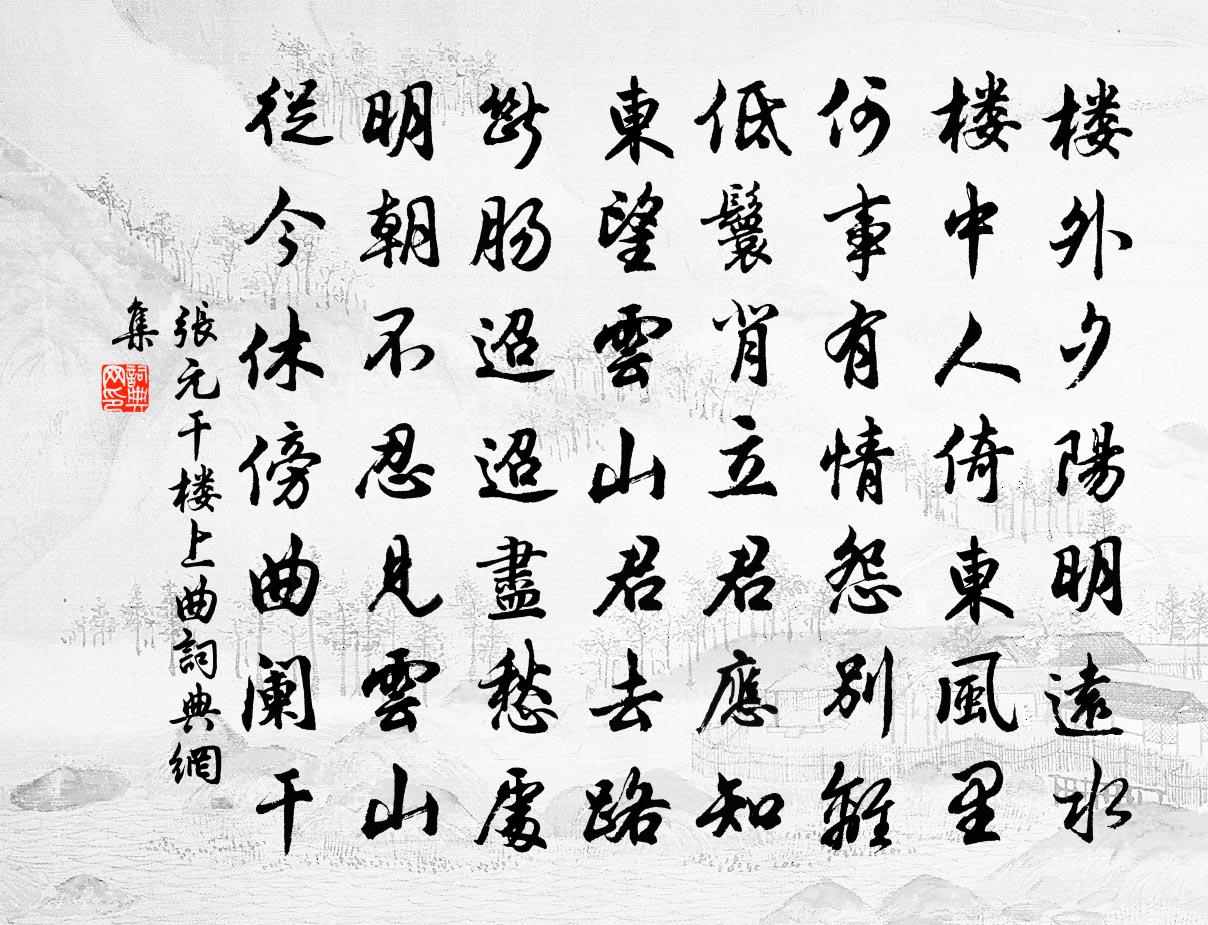 楼外夕陽明遠水
楼中人倚東風里
何事有情怨别離
低鬟背立君應知
東望雲山君去路
斷肠迢迢盡愁處
明朝不忍見雲山
從今休傍曲阑干
張元干楼上曲詞典網
集
詞典
网印